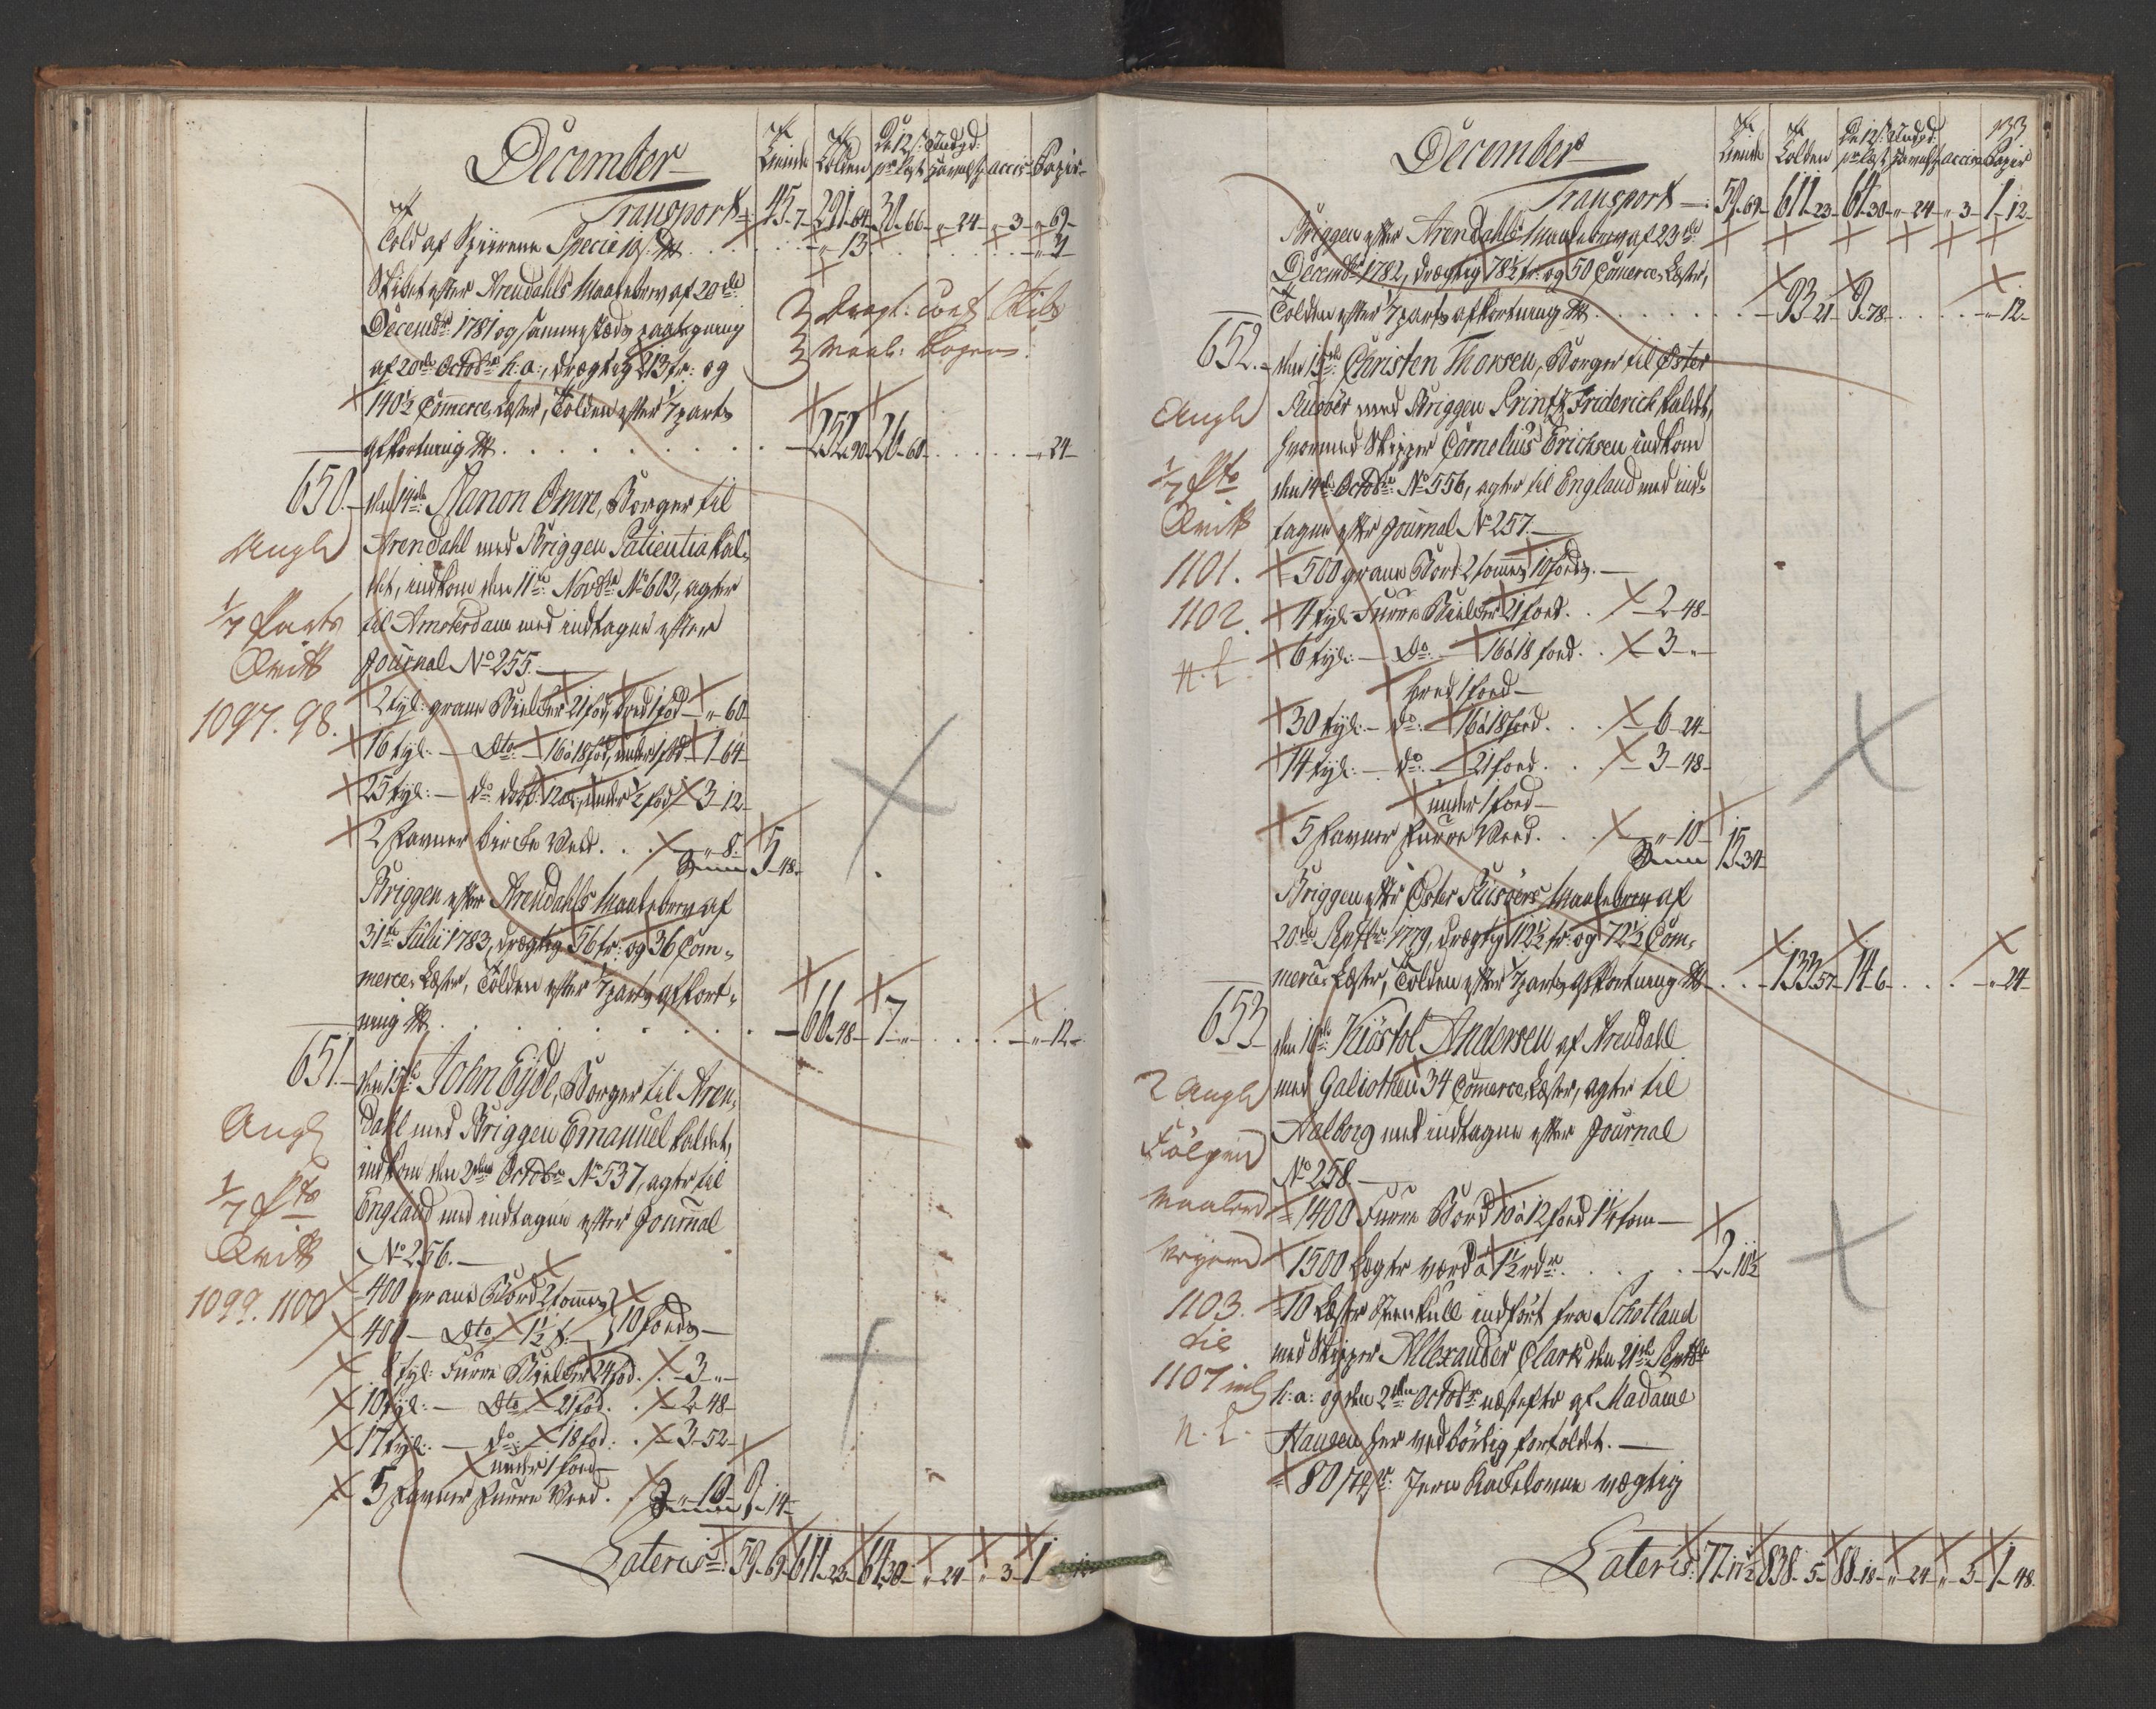 December
Tienden Tolden De 12 s. pr Læst accis Papir
Transport 45-7- 291-64- 30-66- "-24- "-3- "-69-
Told af Specie 10 s.
"-13
"-3
Skibet efter Arendahls Maalebrev af 20de
Decembr 1781 og paategning
af 20de Octobr h: a:, drægtig 213 tr: og
140½ Commerce Læster, Tolden efter 1/7 parts
afkortning
252-90- 26-60- "-24-
650.
den 14de Nanon Omre, Borger til
Arendahl med Briggen Patientia kal-
det, indkom den 11te Novbr No 603, agter
til Amsterdam med indtagne efter
Journal No 255.
Angl
1/7 Parts
Qvitt
1097. 98.
2 tyl: grane Bielker 21 fod, bred 1 fod "-60-
16 tyl: - Dto - 16 à 18 fod, under 1 fod 1-64-
25 tyl: - do do 12 al: under ½ fod 3-12-
2 Favner Bircke Veed . . "-8-
5-48-
Briggen efter Arendahls Maalebrev af
31te Julii 1783, drægtig 56 tr: og 36 Com-
merce Læster, Tolden efter 1/7 parts afkort-
ning
66-48- 7-"- "-12-
651.
den 15de John Eyde, Borger til Aren-
dahl med Briggen Emanuel kaldet,
indkom den 2den Octobr No 537, agter til
England med indtagne efter Journal
No 256.
Angl
1/7 Pts
Qvitt
1099. 1100
400 grane Bord 2 tommes
400 - Dto 1½ t. 10 fods
8 tyl: Furre Bielker 24 fod. 3-"-
10 tyl: - Dto - 21 fod. . 2-48-
17 tyl: - do: - 18 fod: . 3-52-
under 1 foed
5 Favner Furre Veed . "-10-
9-14-
Lateris: 59-69- 611-23- 64-30- "-24- "-3- 1-12
December
133
Tienden Tolden De 12 s. pr Læst accis Papir
Transport 59-69- 611-23- 64-30- "-24- "-3- 1-12-
Briggen efter Arendahls Maalebrev af 23de
Decembr 1782, drægtig 78½ tr: og 50 Comerce Læster,
Tolden efter 1/7 parts afkortning
93-21- 9-78- "-12-
652.
den 15de Christen Thorsen, Borger til Øster
Riisöer med Briggen Printz Friderich kaldet,
hvormed Skipper Cornelius Erichsen indkom
den 14de Octobr No 556, agter til England med ind-
tagne efter Journal No 257.
Angl
1/7 Pts
Qvitt
1101.
1102.
n. L.
500 grane Bord 2 tommes 10 fods.
4 tyl: Furre Bielker 21 foed. . 2-48-
6 tyl: - Do: - 16 à 18 foed. . 3-"-
bred 1 foed
30 tyl: - do: 16 à 18 foed. . 6-24-
14 tyl: - do: - 21 foed. . 3-48-
under 1 foed
5 Favner Furre Veed. . "-10-
15-34-
Briggen efter Øster Riisöers Maalebrev af
20de Septbr 1779, drægtig 112½ tr: og 72½ Com-
merce Læster, Tolden efter 1/7 parts afkortning
133-57- 14-6- "-24-
653
den 16de Kiöstol Andersen af Arendahl
med Galiothen 34 Commerce Læster, agter til
Aalborg med indtagne efter Journal
No 258.
2 Angl
1103.
til
1107 incl
n. L.
1400 Furre Bord 10 à 12 foed 1¼ tom
1500 Lægter værd à 1½ rdr. . . . 2-10½
10 Læster Steenkull indført fra Schotland
med Skipper Allexander Clark den 21de Septbr
h: a: og den 2den Octobr næstefter af Madame
Hansen her vedbörlig fortoldet.
80 Jern Kackelovne vægtig
Lateris: 77-17½ 838-5- 88-18- "-24- "-3- 1-48.